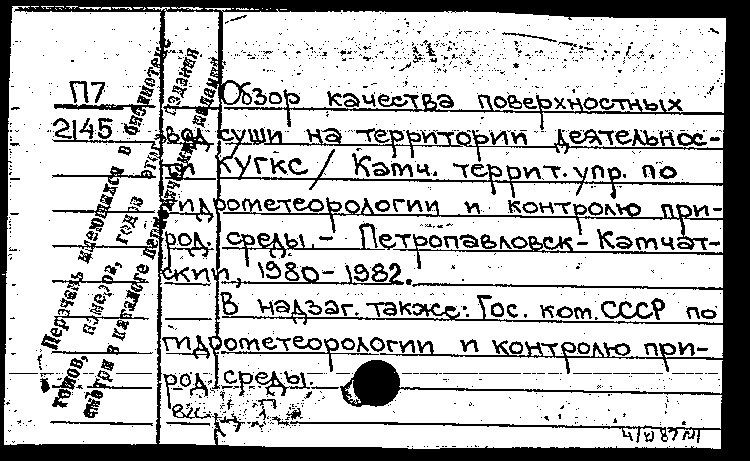 П7
2145
Обзор качества поверхностных
вод суши на территории деятельнос-
ти КУГКС / Камч. террит. упр. по
гидрометеорологии и контролю при-
род. среды. - Петропавловск-Камчат-
ский, 1980-1982.
В надзаг. также: Гос. ком. СССР по
гидрометеорологии и контролю при-
род. среды.
Перечень имеющихся в библиотеке
томов, номеров, годов этого издания
смотри в каталоге периодических изданий